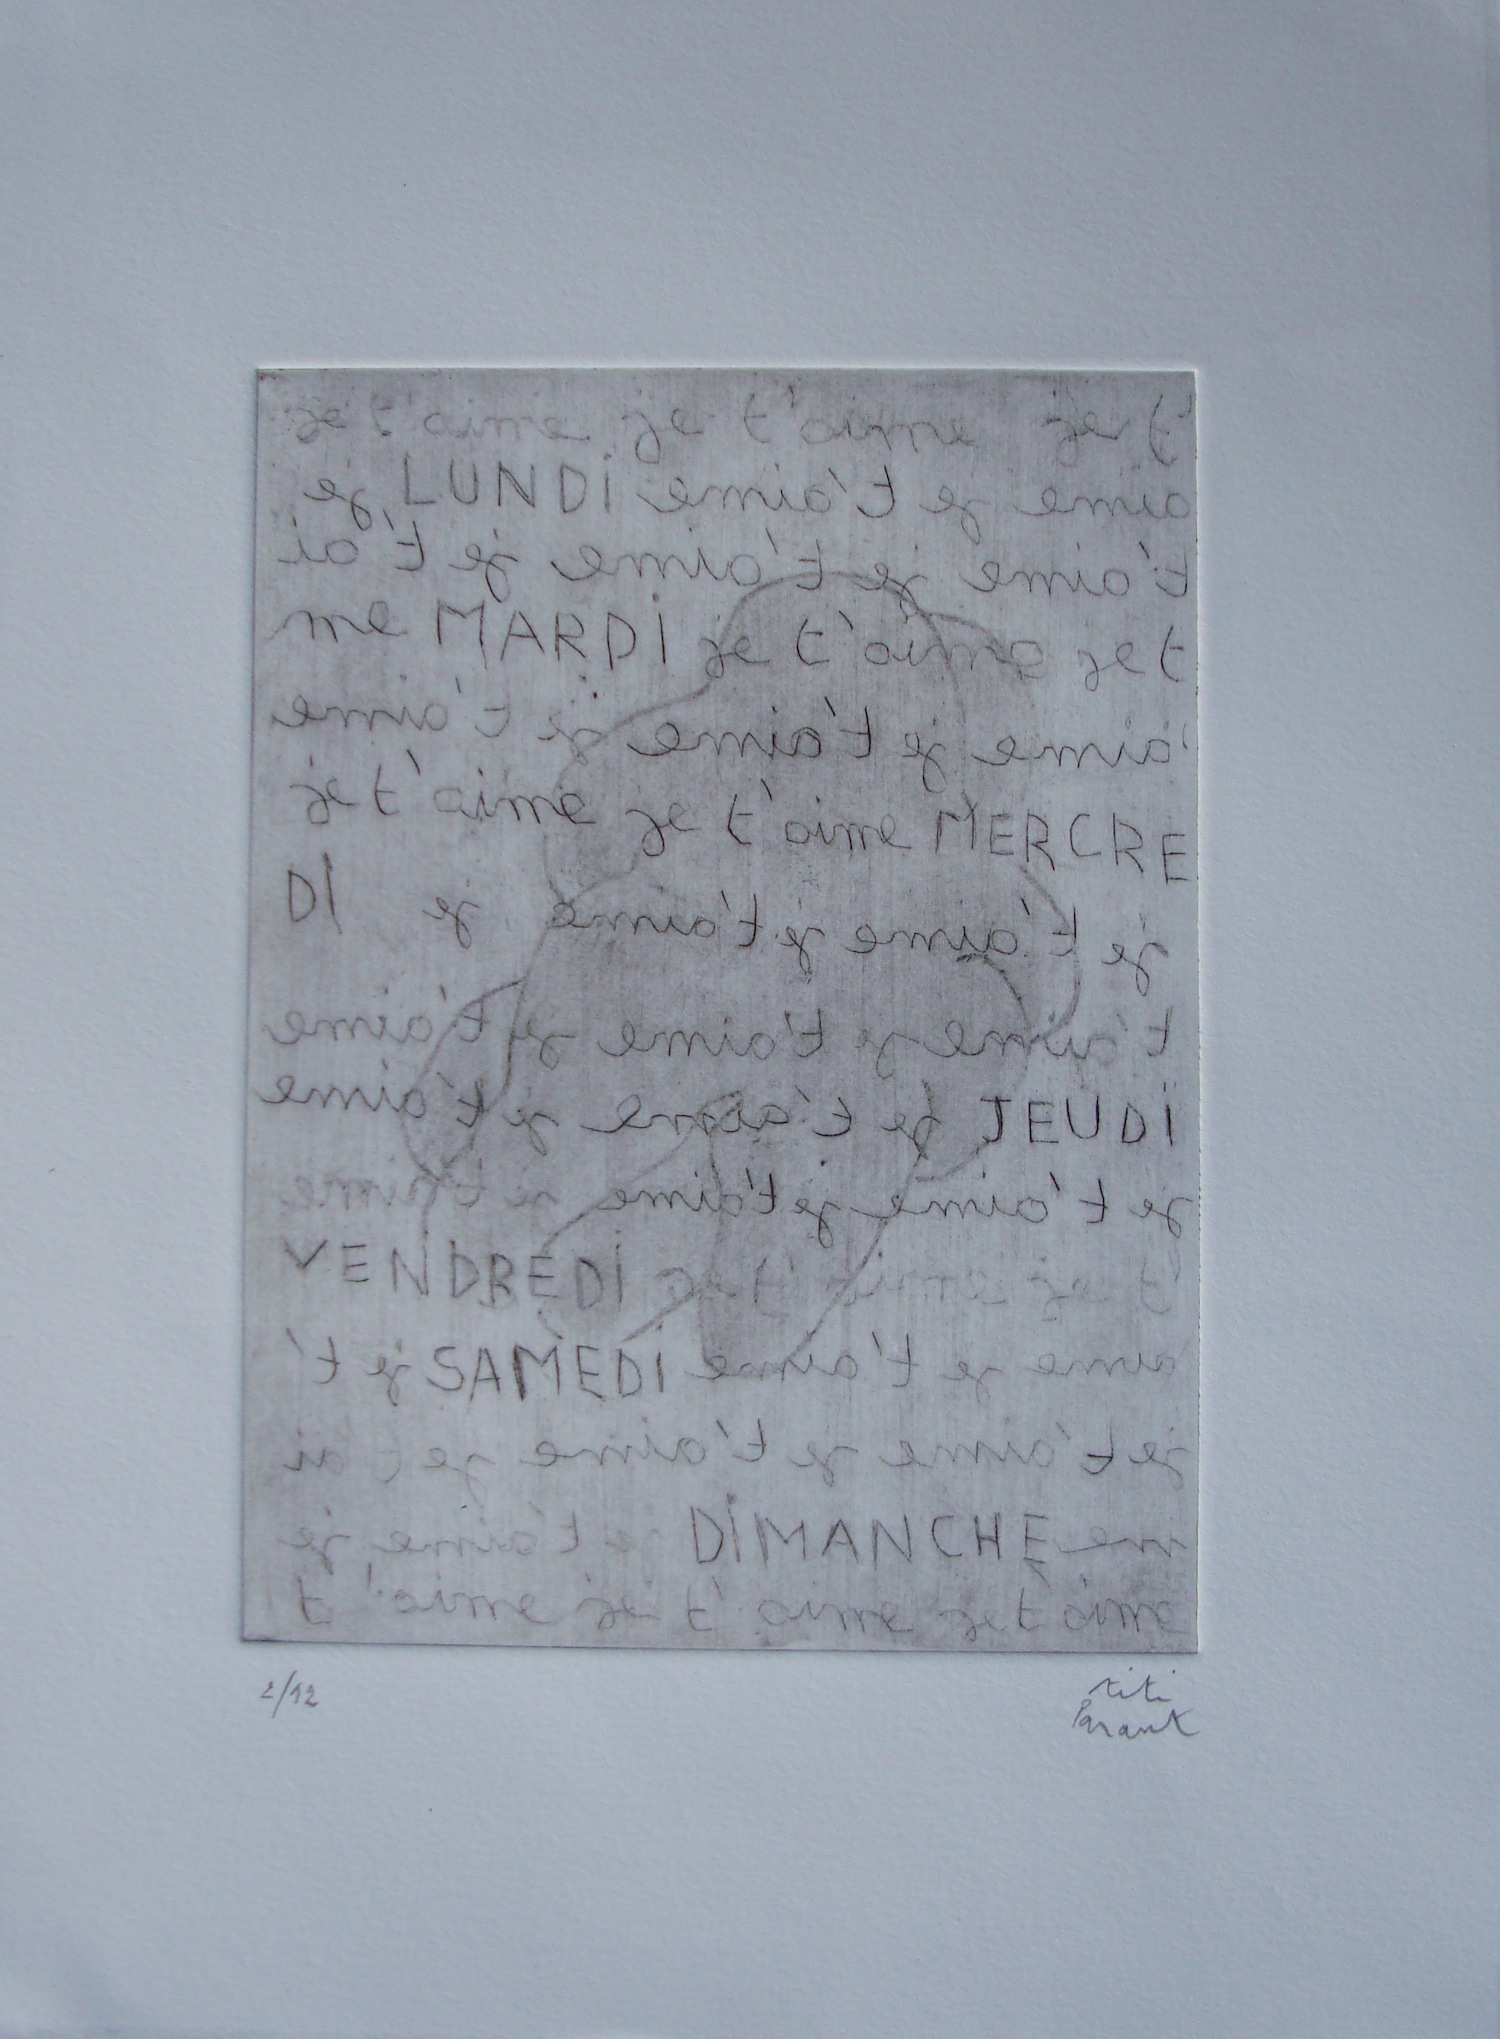 je t'aime je t'aime je t'
aime je t'aime LUNDI je
t'aime je t'aime je t'ai
me MARDI je t'aime je t
'aime je t'aime je t'aime
je t'aime je t'aime MERCRE
DI je t'aime je t'aime je
t'aime je t'aime je t'aime
JEUDI je t'aime je t'aime
je t'aime je t'aime je t'aime
VENDREDI je t'aime je t'
aime je t'aime SAMEDI je t'
je t'aime je t'aime je t ai
me DIMANCHE je t'aime je
t'aime je t'aime je t'aime
2/12
titi
Parant